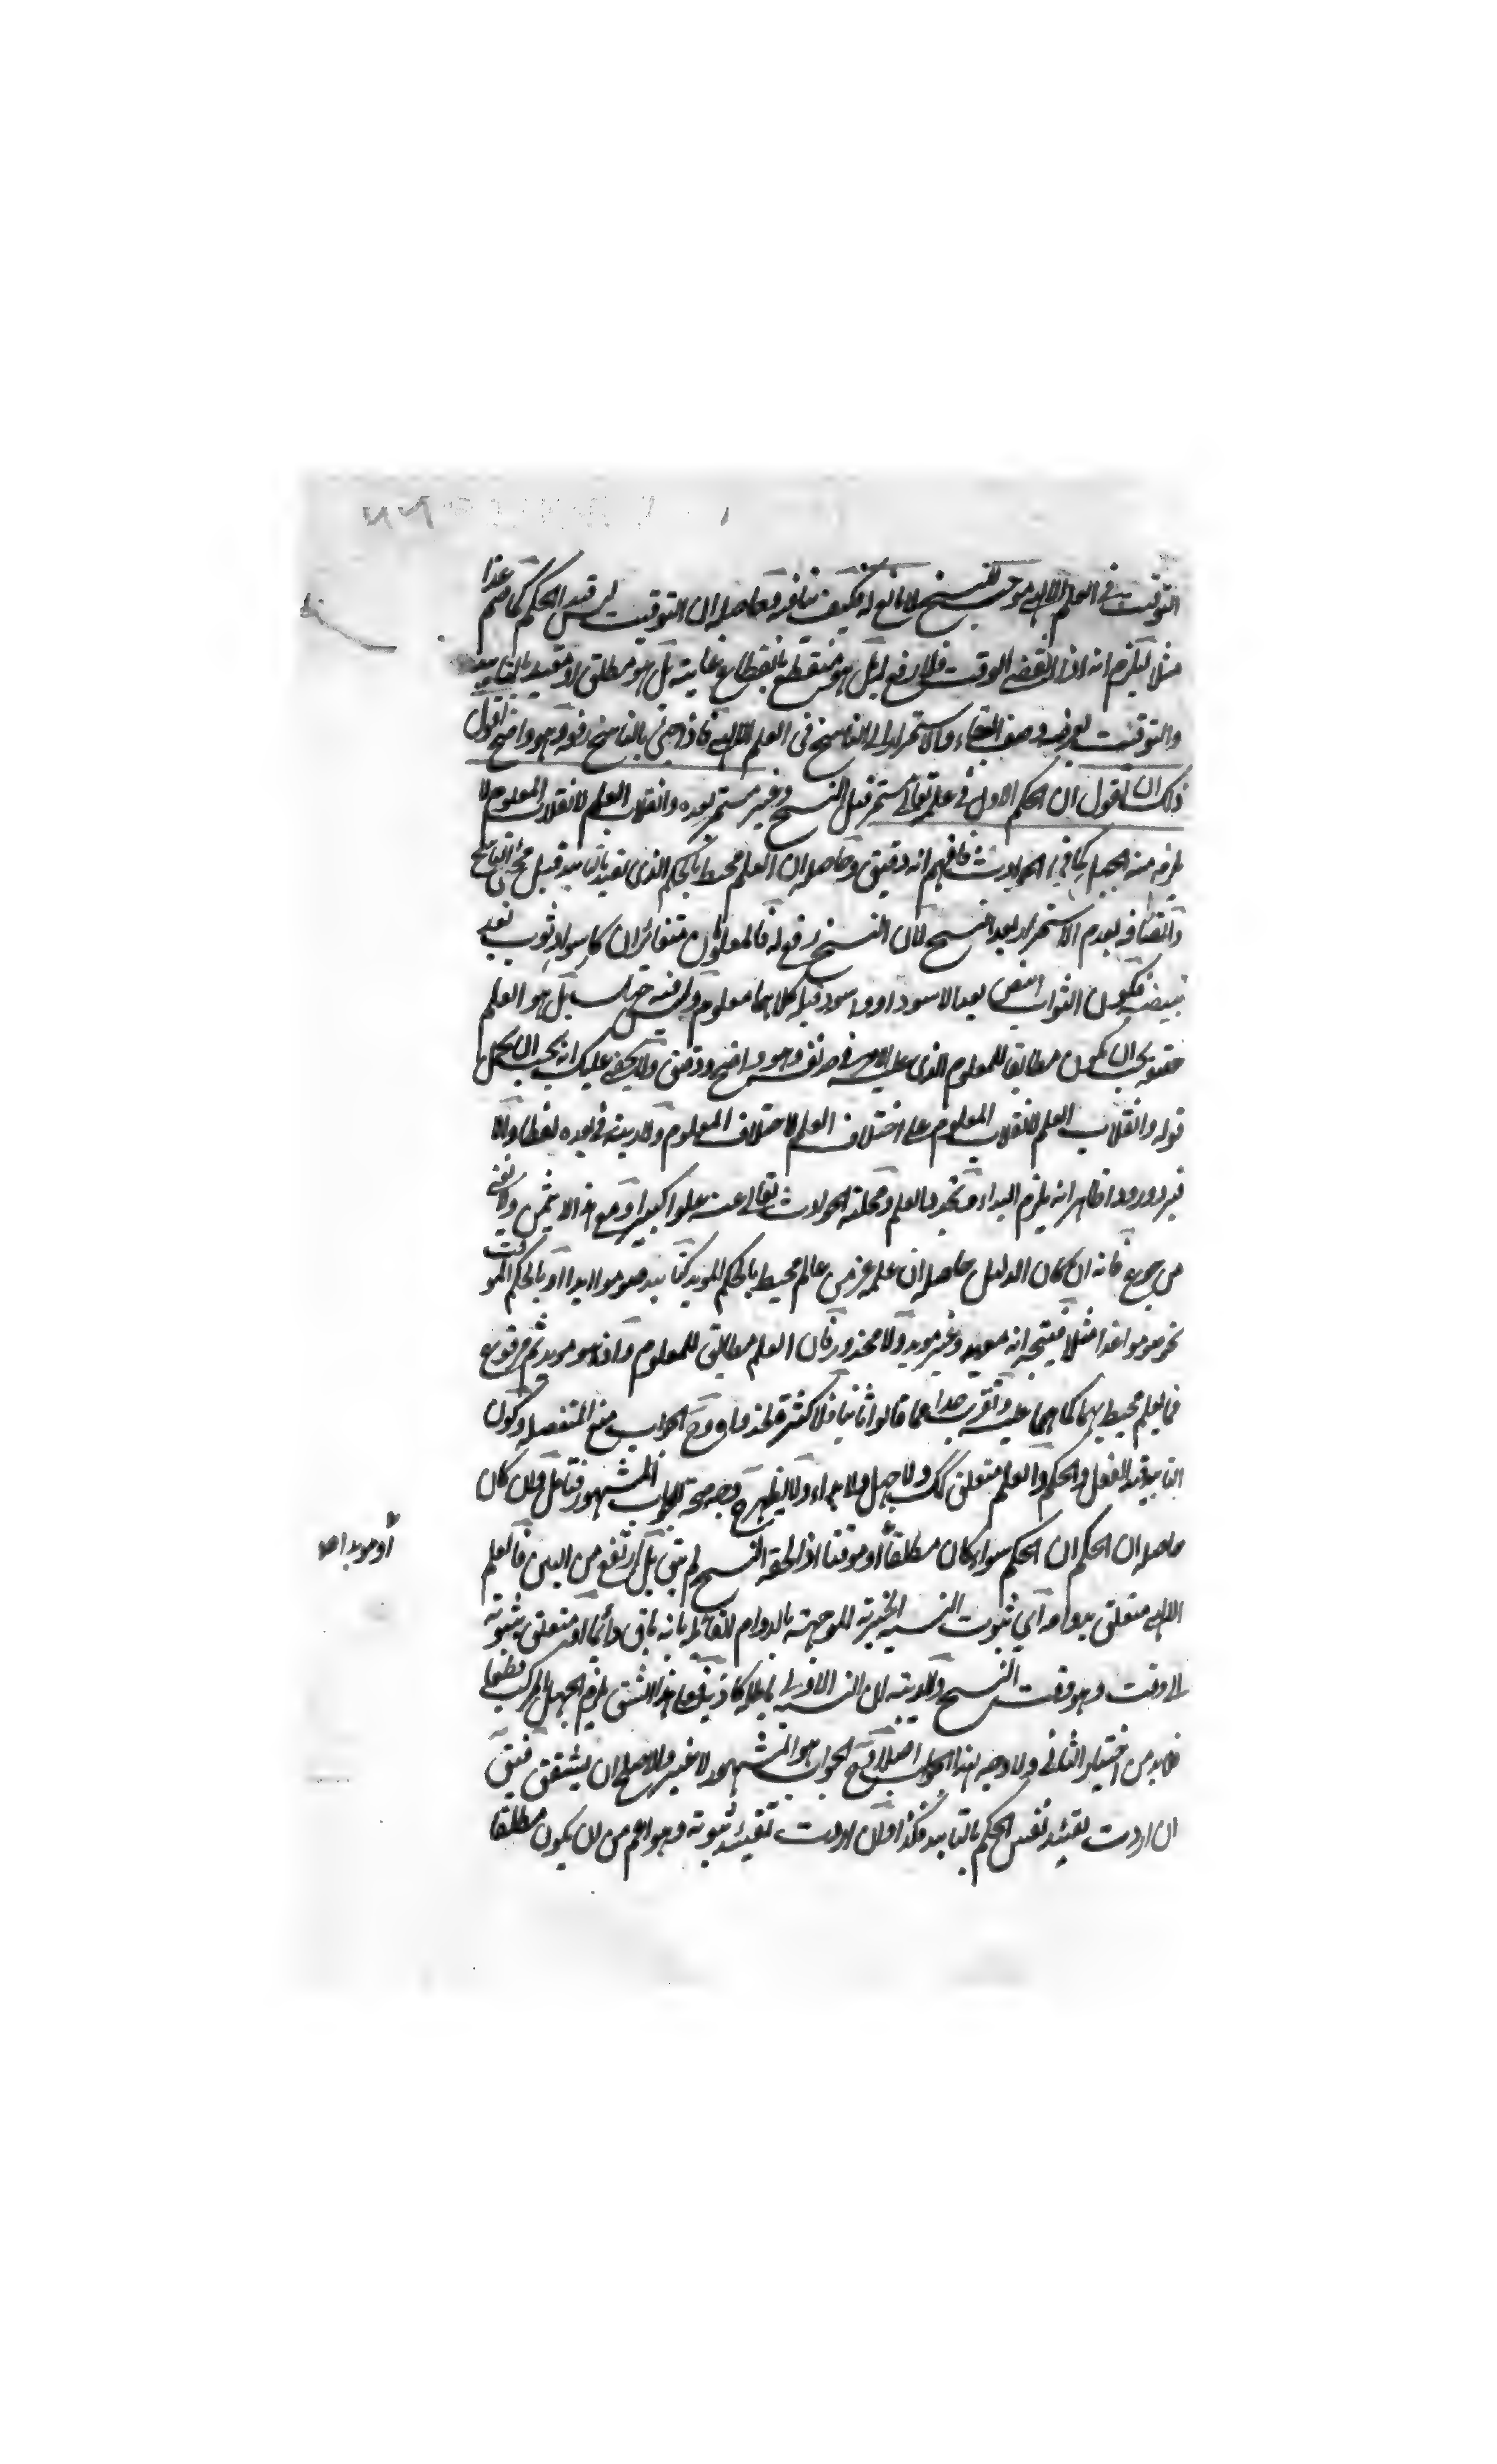 التوقيت في العلم الالهي موجب للنسخ لا مانع له فكيف ينافيه وحاصله ان التوقيت ليس قيد الحكم كما صم غدا
مثلا ليلزم انه اذا انقضى الوقت فلا رفع بل هو منقطع بانقطاع غايته بل هو مطلق او مقيد بالتابيد
والتوقيت لعروض وصف البقاء والاستمرار الى الناسخ في العلم الالهي فاذا جئ بالناسخ رفعه وهو واضح اقول
ذلك ان تقول ان الحكم الاول في علمه تعالى مستمر قبل النسخ وغير مستمر بعده وانقلاب العلم لانقلاب المعلوم لا
يلزم منه الجهل كما في الحوادث فافهم انه دقيق وحاصله ان العلم محيط بالحكم الذي تقيد بالتابيد قبل مجئ الناسخ
واتصافه بعدم الاستمرار بعد النسخ لان النسخ رفع له فالمعلومان متغائران كاسوداد ثوب بعد
تبيضه فيكون الثواب ابيض بعد الاسوداد واسود قبله كلاهما معلوم وليس فيه جهل بل هو العلم
حقيقة يجب ان يكون مطابقا للمعلوم الذي عليه الامر في حد نفسه وهو واضح ودقيق ولا يخفى عليك انه يجب ان يحمل
قوله وانقلاب العلم لانقلاب المعلوم على اختلاف العلم لاختلاف المعلوم ولا ريبة في بعده لفظا والا
فيرد ورودا ظاهرا انه يلزم البداء وتجدد العلم ومحلية الحوادث تعالى عنه علوا كبيرا ومع هذا لا يثمن ولا يغني
من جوع فانه ان كان الدليل حاصله ان علمه عز من عالم محيط بالحكم المؤبد كتابيد صوموا ابدا او بالحكم الموقت
نحو صوموا غدا مثلا فيتجه انه مؤبد وغير مؤبد ولا محذور فان العلم مطابق للمعلوم واذا هو مؤبد ثم مرفوع
فالعلم محيط بهما كما هما عليه وتقرب جدا مما قالوا ثانيا فلا كثرة لحذواق ورح الجواب منع المنفصلة وكون
التابيد قيد الفعل والحكم والعلم متعلق كك ولا جهل ولا بداء ولا يظهر ح وجه صحة الجواب المشهور فتامل وان كان
حاصله ان الحكم ان الحكم سواء كان مطلقا او موقتا اذا لحقه النسخ لم يبق بل ارتفع من البين فالعلم
او مؤبدا صح
الالهي متعلق بدوامه اي ثبوت النسبة الخبرية الموجهة بالدوام القائلة بانه باق دائما او متعلق بثبوته
الى وقت وهو وقت النسخ ولا ريبة ان النسبة الاولى باطلة كاذبة فعلى هذا الشق يلزم الجهل المركب قطعا
فلابد من اختيار الثاني ولا وجه لهذا الجواب اصلا وح الجواب هو المشهور لا غير والاصلح ان يشقق فيق
ان اردت تقييد نفس الحكم بالتابيد فكذا وان اردت تقييد ثبوته وهو اعم من ان يكون مطلقا